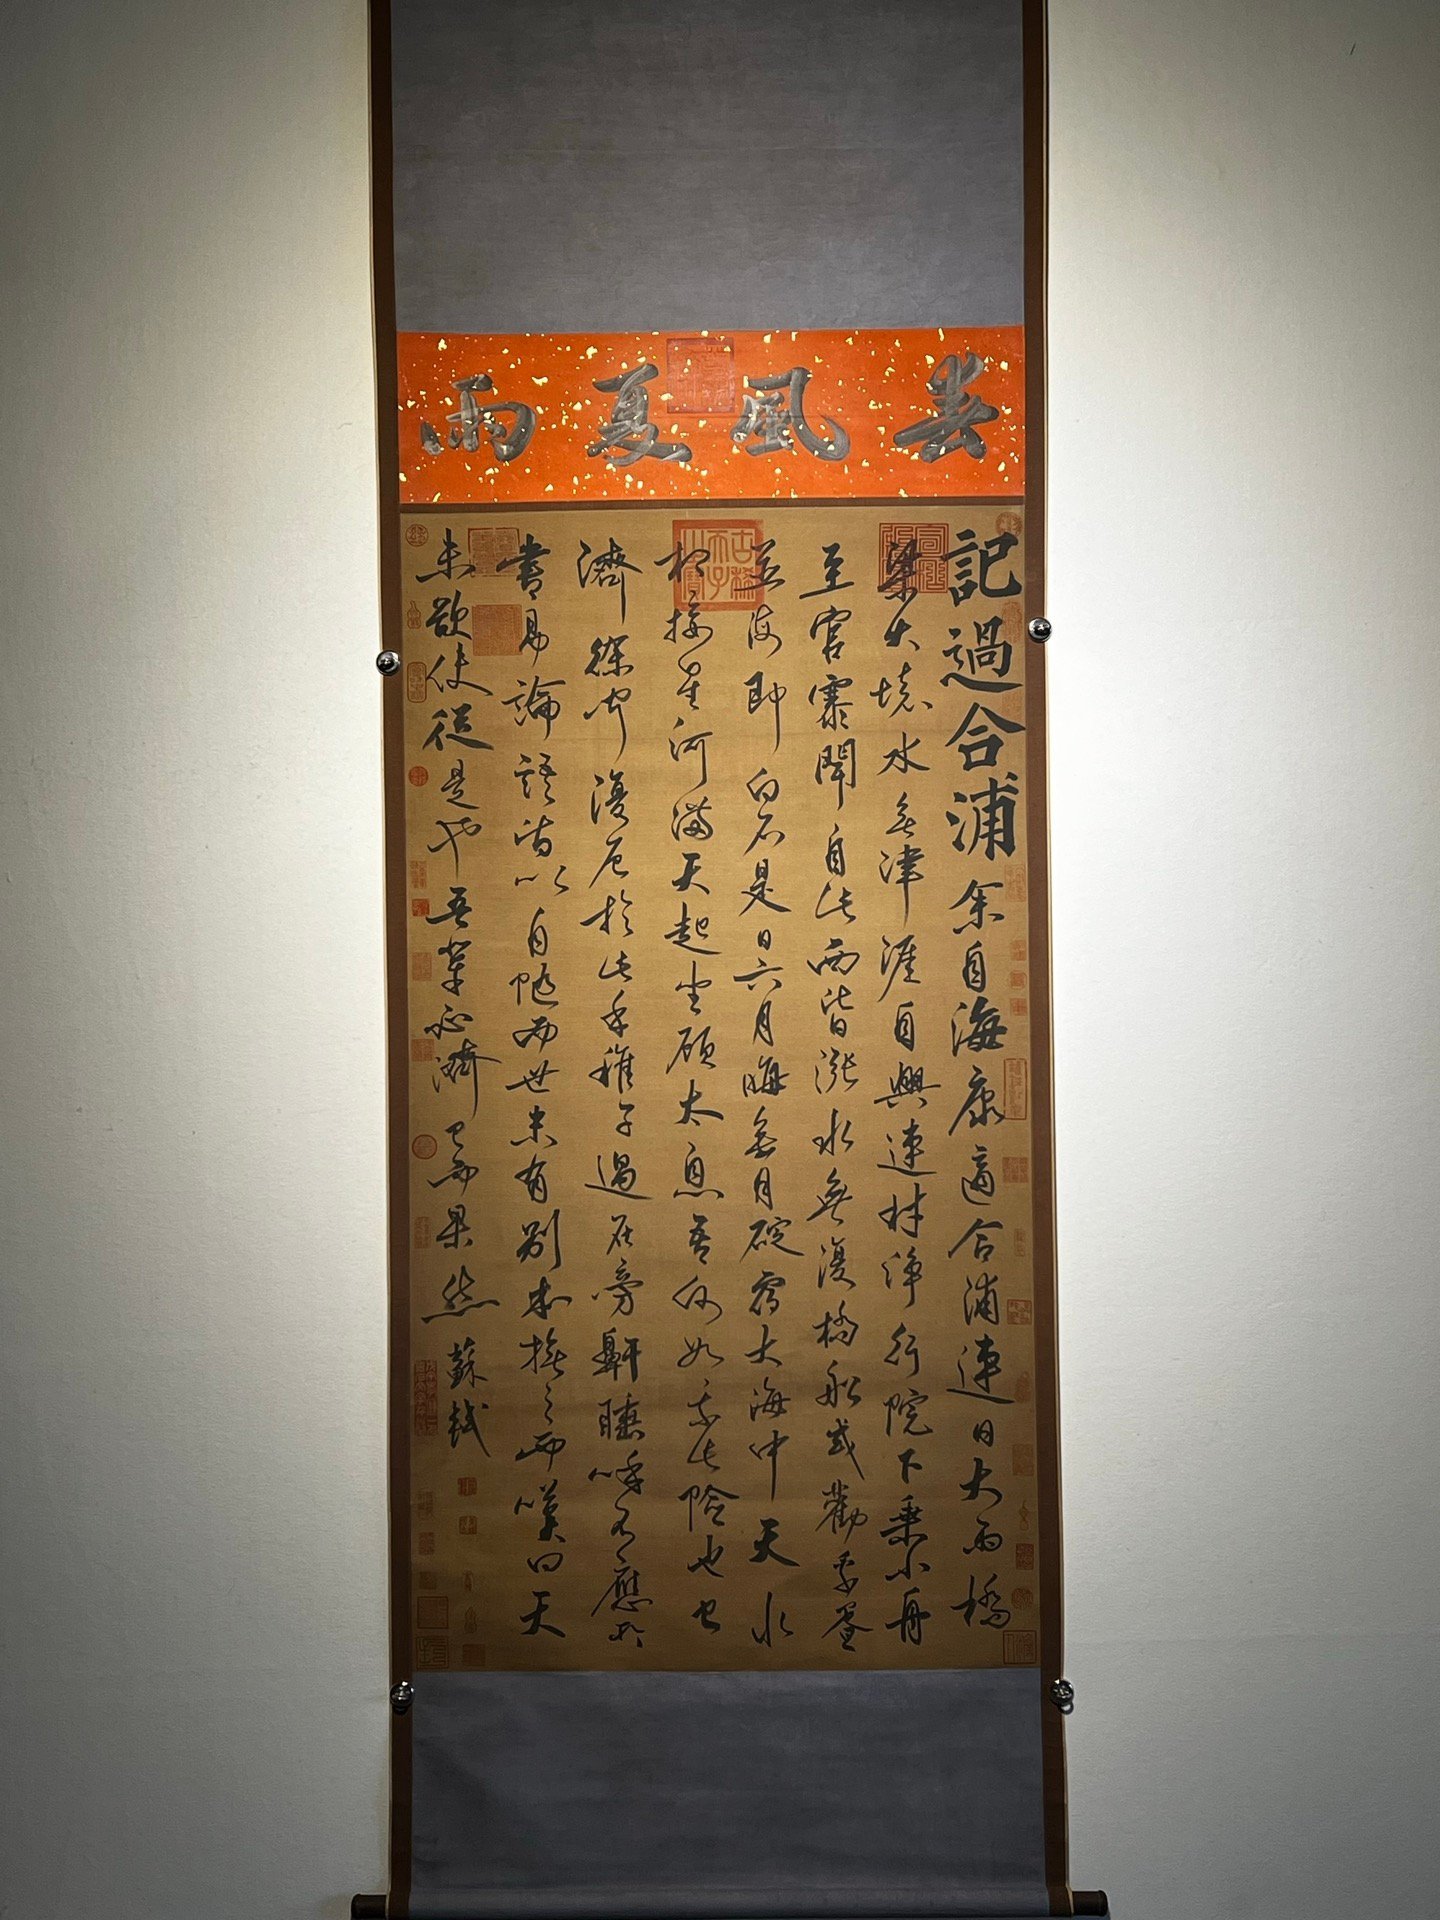 春風夏雨
記過合浦 余自海康適合浦連日大雨橋
梁大壞水無津涯自興連村淨行院下乘小舟
至官寨聞自此西皆漲水無復橋船或勸乘蜑
並海即白石是日六月晦無月碇宿大海中天水
相接星河滿天起坐顧太息吾何數乘此險也已
濟徐聞復厄於此乎稚子過在旁鼾睡呼不應所
書易論語皆以自隨而世未有別本撫之而嘆曰天
未欲使從是也吾輩必濟已而果然 蘇軾